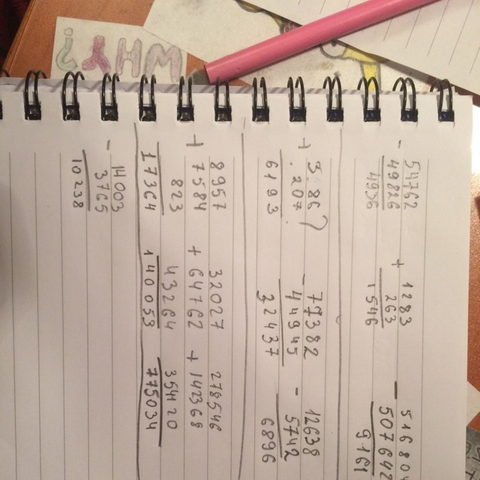 WHY?
54762 1283 516804
- 49826 + 263 - 507642
4936 1546 9161
3.86? 77382 12638
+ .207. - 44945 - 5742
6193 32437 6896
8957 32027 278546
+ 7584 + 64762 + 142368
823 43264 354120
17364 140053 775034
14003
- 3765
10238